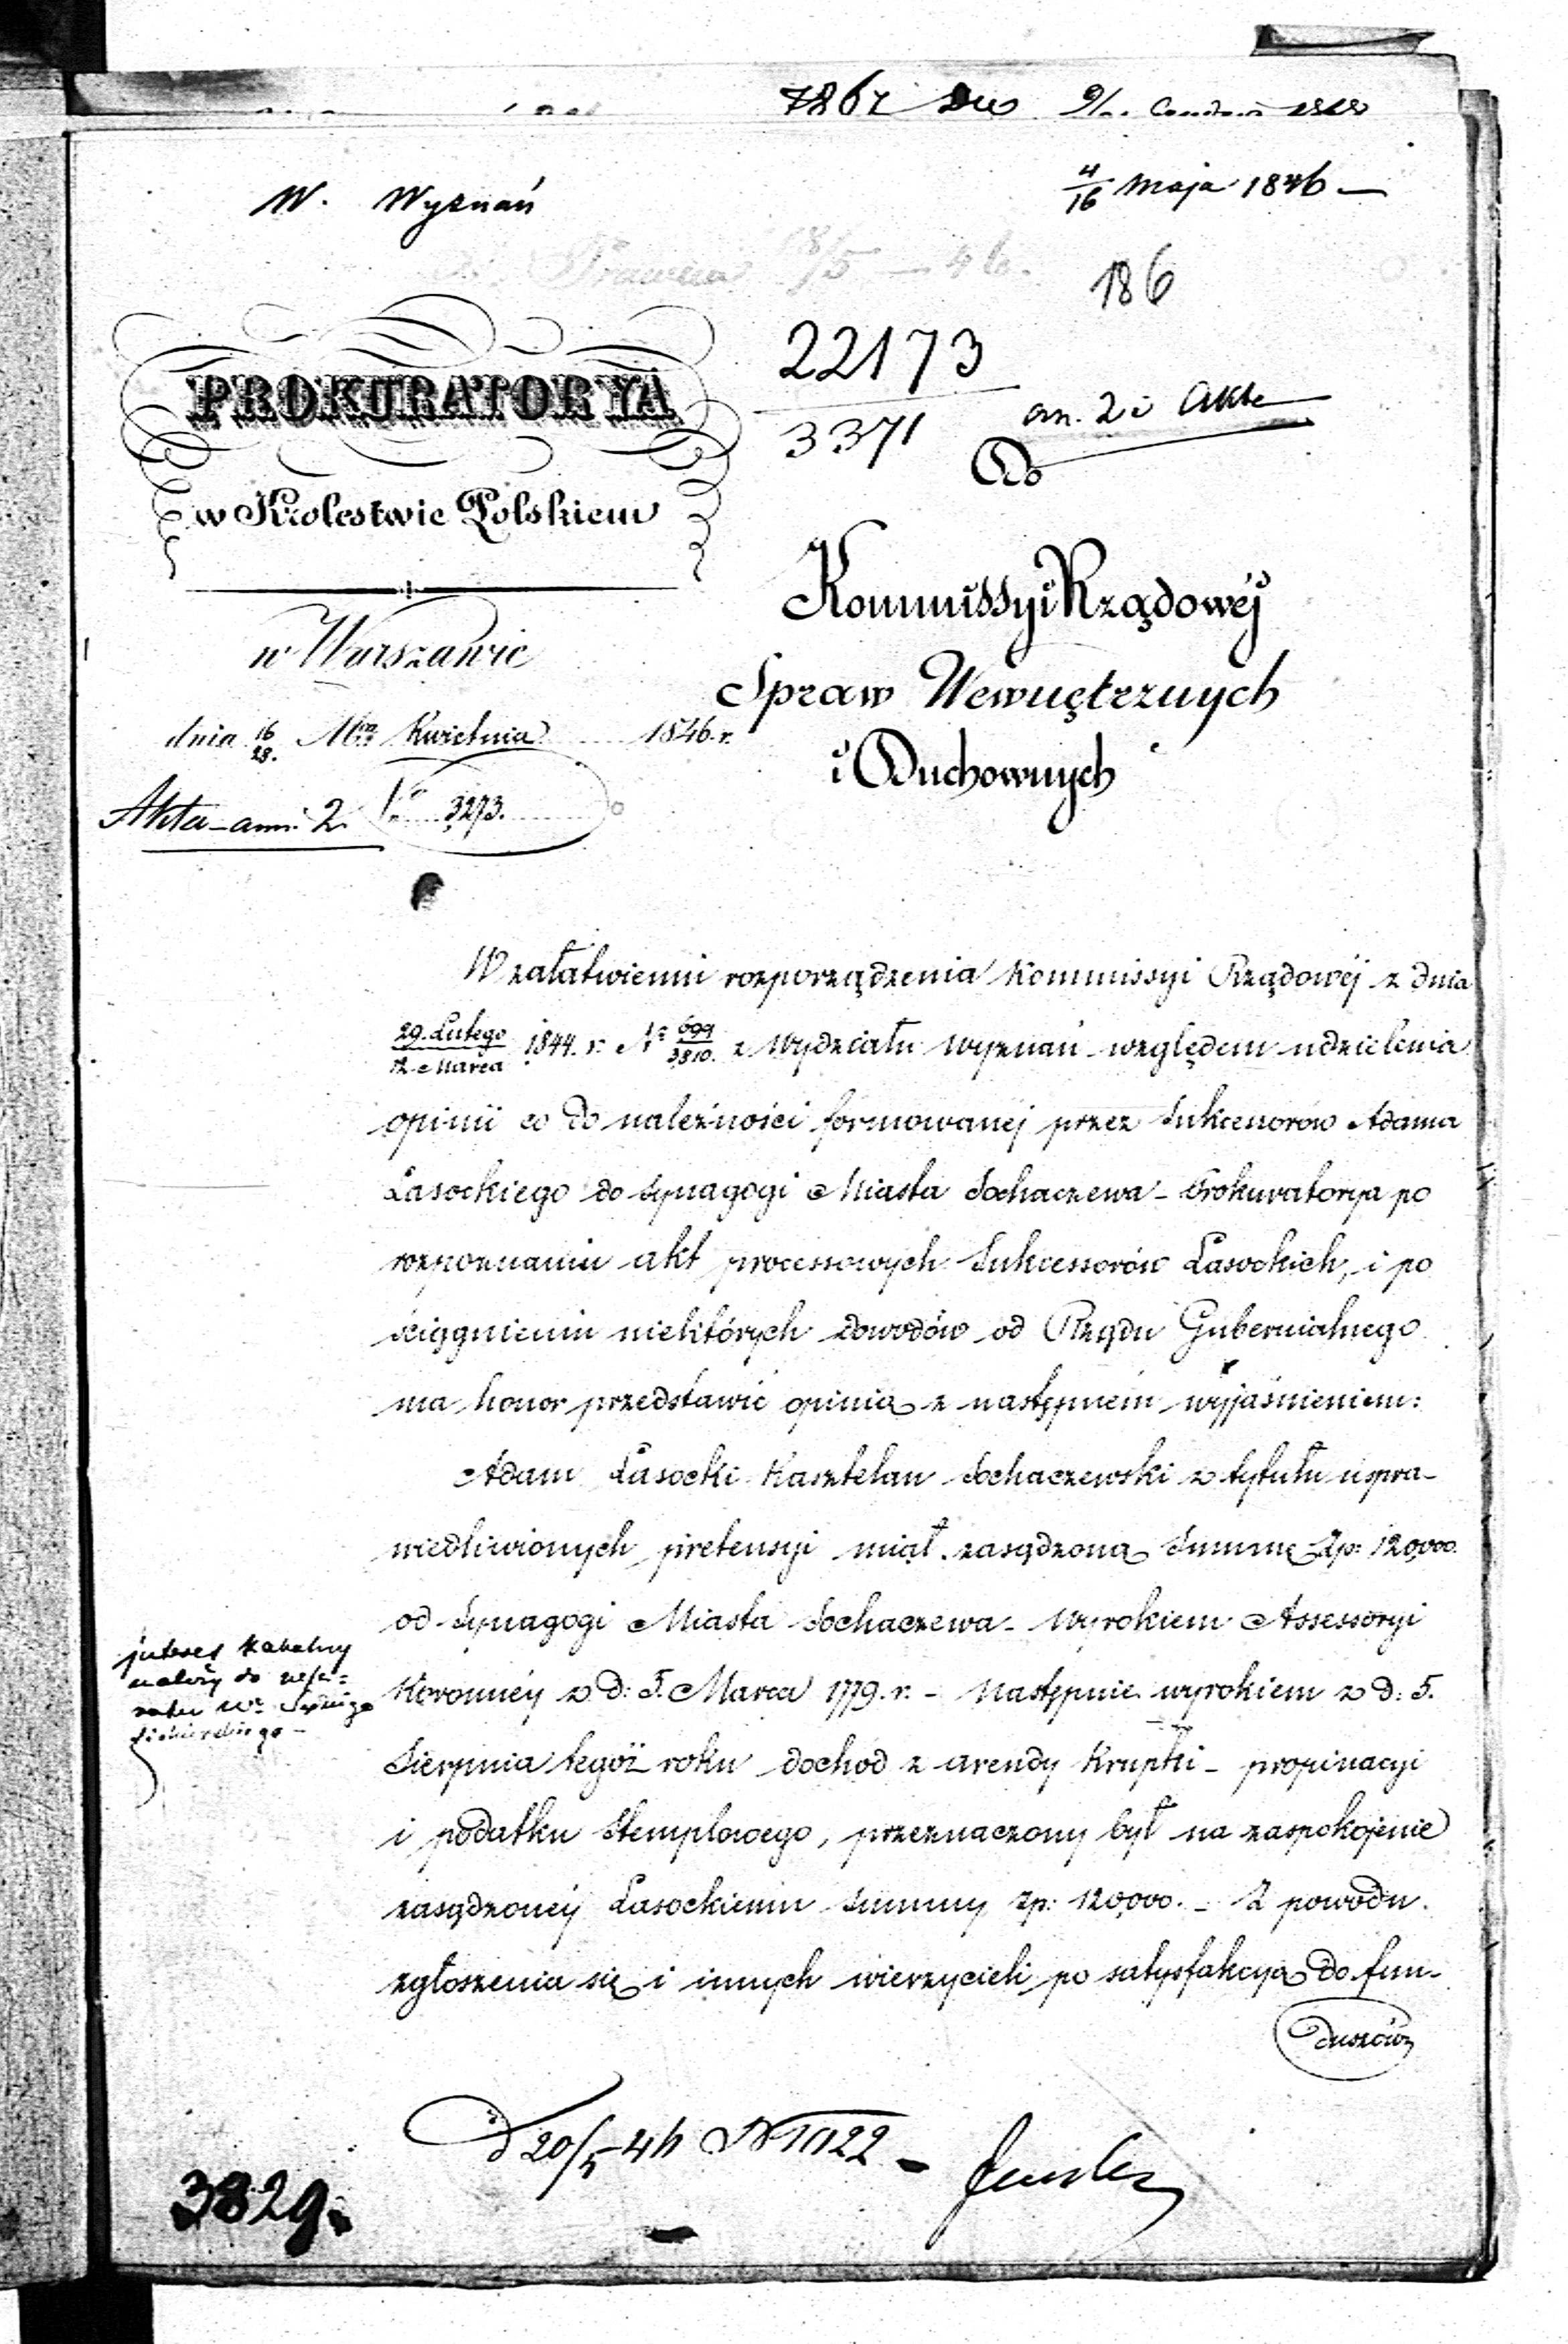 W. Wyznań
4/16 Maja 1846 —
186
22173
3371
an. 2 i Akta
PROKURATORYA
w Krolestwie Polskiem
w Warszawie
dnia 16/28. Mca Kwietnia 1846. r.
Akta ann: 2. No 3273.
Do
Kommissyi Rządowéj
Spraw Wewnętrznych
i Duchownych
W załatwieniu rozporządzenia Kommissyi Rządowéj z dnia
29. Lutego/12. Marca 1844. r. No 699/3810. z Wydziału Wyznań względem udzielenia
opinii co do należności formowanéj przez Sukcessorów Adama
Lasockiego do Synagogi Miasta Sochaczewa – Prokuratorya po
rozpoznaniu akt processowych Sukcessorów Lasockich, i po
ściągnieniu niektórych dowodów od Rządu Gubernialnego
ma honor przedstawić opinią z następném wyjaśnieniem:
Adam Lasocki Kasztelan Sochaczewski z tytułu uspra-
wiedliwionych pretensyi miał zasądzoną Summę Zp: 120,000.
od Synagogi Miasta Sochaczewa – Wyrokiem Assessoryi
Koronnéy z d: 5. Marca 1779. r. – Następnie wyrokiem z d: 5.
Sierpnia tegóż roku dochód z arendy Krupki – propinacyi
i podatku Stemplowego, przeznaczony był na zaspokojenie
zasądzonéy Lasockiemu Summy Zp: 120,000. – Z powodu
zgłoszenia się i innych wierzycieli po satysfakcyą do fun-
duszów
interes Kahalny
należy do
3829.